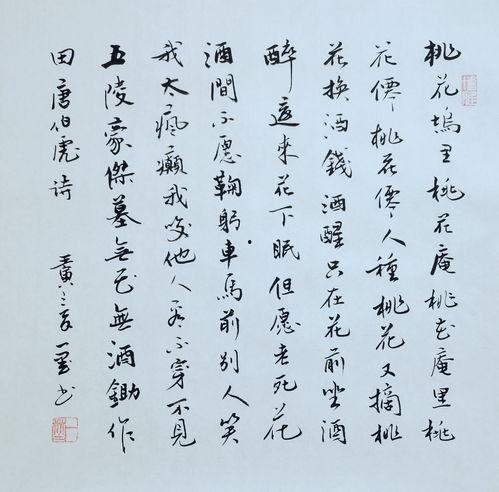 桃花塢里桃花庵桃花庵里桃
花僊桃花僊人種桃花又摘桃
花換酒錢酒醒只在花前坐酒
醉還來花下眠但愿老死花
酒間不愿鞠躬車馬前別人笑
我太瘋癲我咲他人看不穿不見
五陵豪傑墓無花無酒鋤作
田唐伯虎诗
书